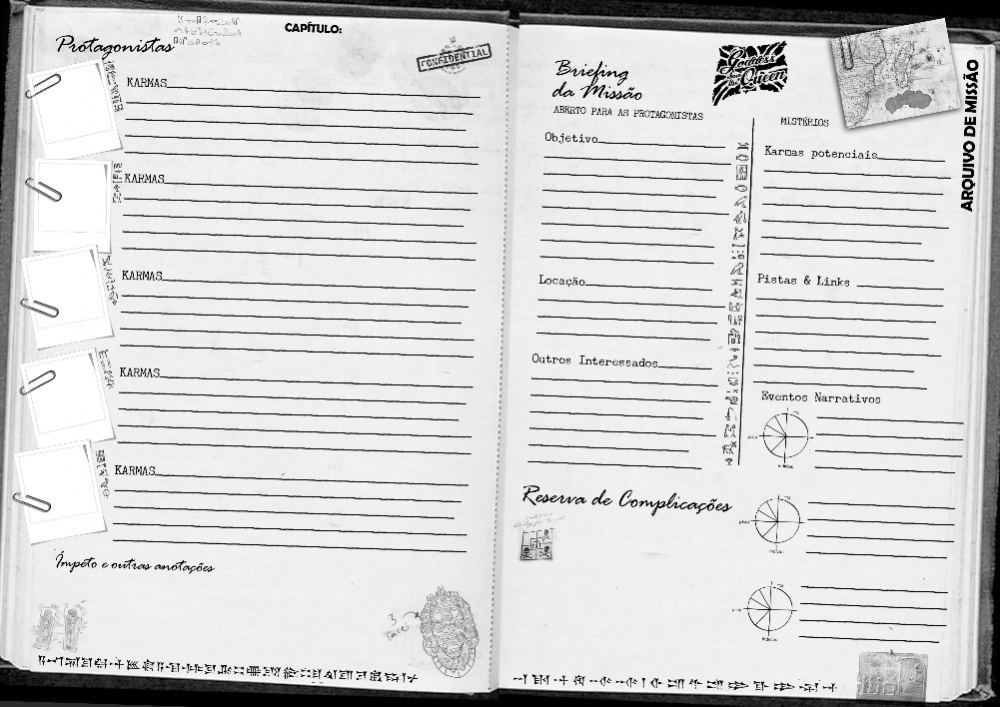 CAPÍTULO:
Protagonistas
CONFIDENTIAL
KARMAS
KARMAS
KARMAS
KARMAS
KARMAS
Ímpeto e outras anotações
3
faces
Briefing
da Missão
ABERTO PARA AS PROTAGONISTAS
Objetivo
Locação
Outros Interessados
Reserva de Complicações
Goddess
Queen
MISTÉRIOS
Karmas potenciais
Pistas & Links
Eventos Narrativos
ARQUIVO DE MISSÃO